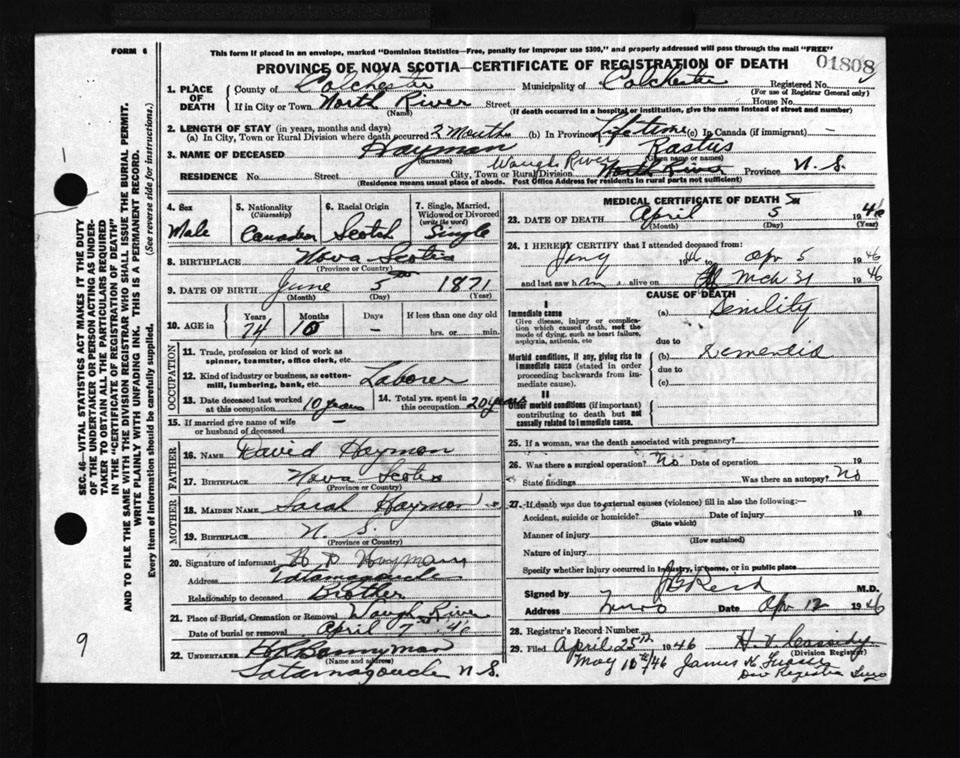 FORM 6
This form if placed in an envelope, marked "Dominion Statistics—Free, penalty for improper use $300," and properly addressed will pass through the mail "FREE"
PROVINCE OF NOVA SCOTIA—CERTIFICATE OF REGISTRATION OF DEATH
01808
1. PLACE OF DEATH
County of Colchester Municipality of Colchester Registered No.
(For use of Registrar General only)
If in City or Town North River Street House No.
(Name) (If death occurred in a hospital or institution, give the name instead of street and number)
2. LENGTH OF STAY (in years, months and days)
(a) In City, Town or Rural Division where death occurred 3 Months (b) In Province Lifetime (c) In Canada (if immigrant) -
3. NAME OF DECEASED Hayman Rastus
(Surname) (Given name or names)
Waugh River
RESIDENCE No. Street City, Town or Rural Division North River Province N. S.
(Residence means usual place of abode. Post Office Address for residents in rural parts not sufficient)
4. Sex Male
5. Nationality (Citizenship) Canadian
6. Racial Origin Scotch
7. Single, Married, Widowed or Divorced (write the word) Single
8. BIRTHPLACE Nova Scotia
(Province or Country)
9. DATE OF BIRTH June 5 1871
(Month) (Day) (Year)
10. AGE in Years 74 Months 10 Days - If less than one day
hrs. or min.
OCCUPATION
11. Trade, profession or kind of work as spinner, teamster, office clerk, etc.
12. Kind of industry or business, as cotton-mill, lumbering, bank, etc. Laborer
13. Date deceased last worked at this occupation 10 years
14. Total yrs. spent in this occupation 20 years
15. If married give name of wife or husband of deceased -
FATHER
16. Name David Hayman
17. Birthplace Nova Scotia
(Province or Country)
MOTHER
18. Maiden Name Sarah Hayman
19. Birthplace N. S.
(Province or Country)
20. Signature of informant Hayman
Address Tatamagouche
Relationship to deceased Brother
21. Place of Burial, Cremation or Removal Waugh River
Date of burial or removal April 7 46
22. Undertaker Bonnyman
(Name and address)
Tatamagouche N S.
MEDICAL CERTIFICATE OF DEATH
23. DATE OF DEATH April 5 1946
(Month) (Day) (Year)
24. I HEREBY CERTIFY that I attended deceased from:
Jany 1946 to Apr 5 1946
and last saw him alive on Mch 31 1946
CAUSE OF DEATH
I
Immediate cause
Give disease, injury or complication which caused death, not the mode of dying, such as heart failure, asphyxia, asthenia, etc
(a) Senility
due to
Morbid conditions, if any, giving rise to immediate cause (stated in order proceeding backwards from immediate cause).
(b) Dementia
due to
(c)
II
Other morbid conditions (if important) contributing to death but not causally related to immediate cause.
25. If a woman, was the death associated with pregnancy?
26. Was there a surgical operation? No Date of operation 19
State findings Was there an autopsy? No
27. If death was due to external causes (violence) fill in also the following:—
Accident, suicide or homicide? Date of injury 19
(State which)
Manner of injury
(How sustained)
Nature of injury
Specify whether injury occurred in industry, in home, or in public place
Signed by Reid M.D.
Address Truro Date Apr 12 1946
28. Registrar's Record Number
29. Filed April 25th 1946 H. V. Cassidy
(Division Registrar)
May 10th/46 James K Fraser
Div Registrar Truro
SEC. 46—VITAL STATISTICS ACT MAKES IT THE DUTY OF THE UNDERTAKER OR PERSON ACTING AS UNDERTAKER TO OBTAIN ALL THE PARTICULARS REQUIRED IN THE "CERTIFICATE OF REGISTRATION OF DEATH" AND TO FILE THE SAME WITH THE DIVISION REGISTRAR WHO SHALL ISSUE THE BURIAL PERMIT.
WRITE PLAINLY WITH UNFADING INK. THIS IS A PERMANENT RECORD.
Every item of information should be carefully supplied. (See reverse side for instructions.)
9